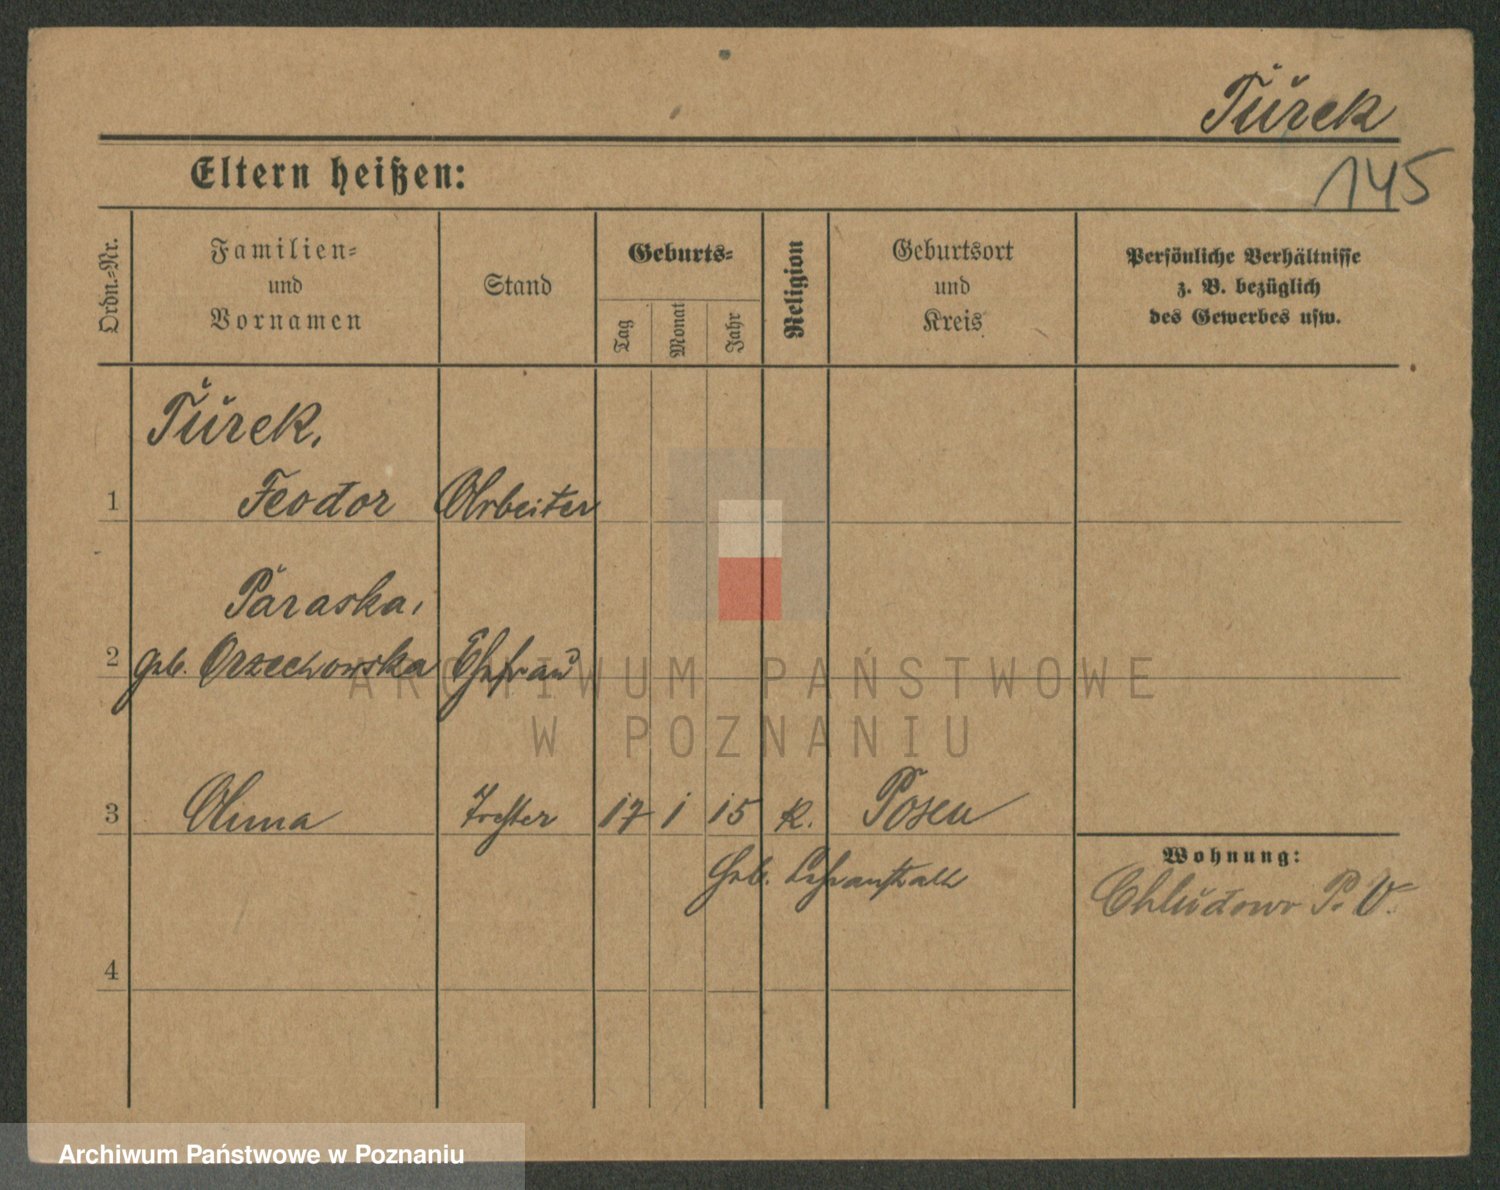 Turek
145
Eltern heißen:
Ordn.-Nr.
Familien- und Vornamen
Stand
Geburts-
Tag
Monat
Jahr
Religion
Geburtsort und Kreis
Persönliche Verhältnisse
z. B. bezüglich
des Gewerbes usw.
Turek,
1 Feodor Arbeiter
Paraska,
2 geb. Orzechowska Ehefrau
3 Anna Tochter 17 1 15 K. Posen
Geb.
4
Wohnung:
Chludowo P. O.
ARCHIWUM PAŃSTWOWE
W POZNANIU
Archiwum Państwowe w Poznaniu